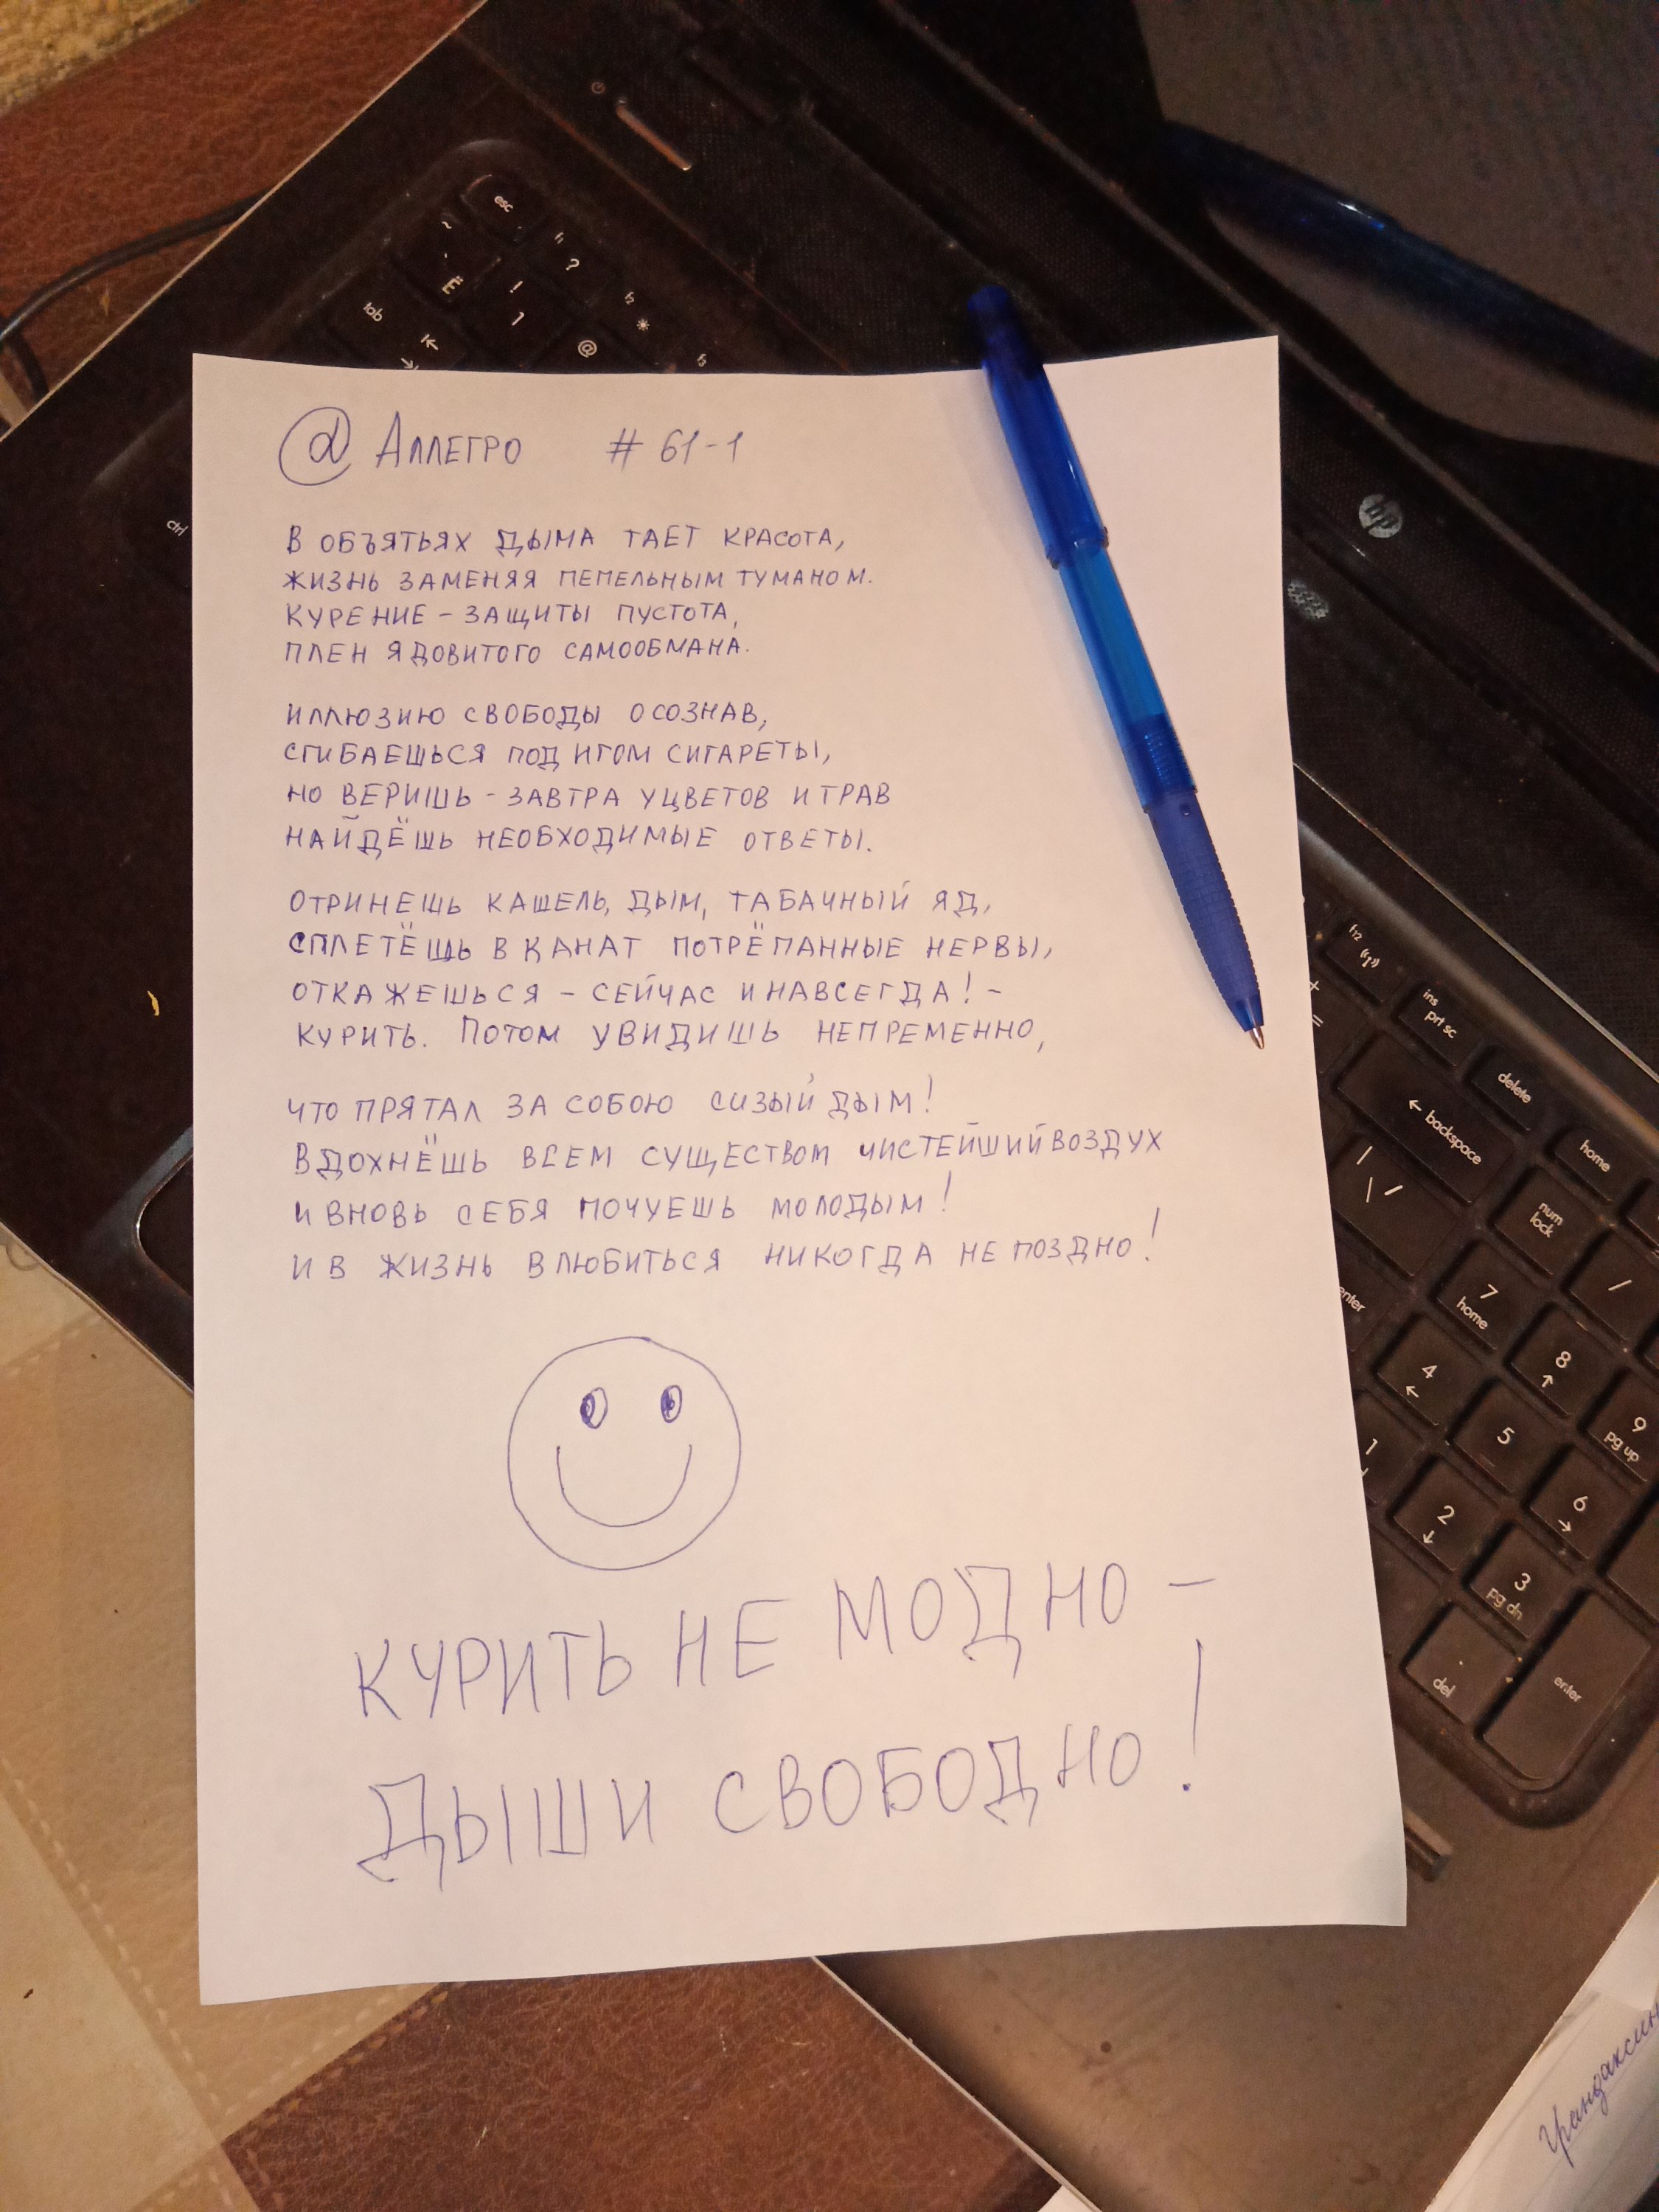 @ Аллегро # 61-1
В ОБЪЯТЬЯХ ДЫМА ТАЕТ КРАСОТА,
ЖИЗНЬ ЗАМЕНЯЯ ПЕПЕЛЬНЫМ ТУМАНОМ.
КУРЕНИЕ - ЗАЩИТЫ ПУСТОТА,
ПЛЕН ЯДОВИТОГО САМООБМАНА.
ИЛЛЮЗИЮ СВОБОДЫ ОСОЗНАВ,
СГИБАЕШЬСЯ ПОД ИГОМ СИГАРЕТЫ,
НО ВЕРИШЬ - ЗАВТРА У ЦВЕТОВ И ТРАВ
НАЙДЁШЬ НЕОБХОДИМЫЕ ОТВЕТЫ.
ОТРИНЕШЬ КАШЕЛЬ, ДЫМ, ТАБАЧНЫЙ ЯД,
СПЛЕТЁШЬ В КАНАТ ПОТРЁПАННЫЕ НЕРВЫ,
ОТКАЖЕШЬСЯ - СЕЙЧАС И НАВСЕГДА! -
КУРИТЬ. ПОТОМ УВИДИШЬ НЕПРЕМЕННО,
ЧТО ПРЯТАЛ ЗА СОБОЮ СИЗЫЙ ДЫМ!
ВДОХНЁШЬ ВСЕМ СУЩЕСТВОМ ЧИСТЕЙШИЙ ВОЗДУХ
И ВНОВЬ СЕБЯ ПОЧУЕШЬ МОЛОДЫМ!
И В ЖИЗНЬ ВЛЮБИТЬСЯ НИКОГДА НЕ ПОЗДНО!
КУРИТЬ НЕ МОДНО -
ДЫШИ СВОБОДНО!
esc
f1 ?
f2
f3
~ Ё
! 1
@
tab
ctrl
hp
f12
ins prt sc
delete
home
+ =
← backspace
num lock
| \ /
/
enter
7 home
8 ↑
9 pg up
4 ←
5
6 →
1
2 ↓
3 pg dn
. del
enter
Грандаксин